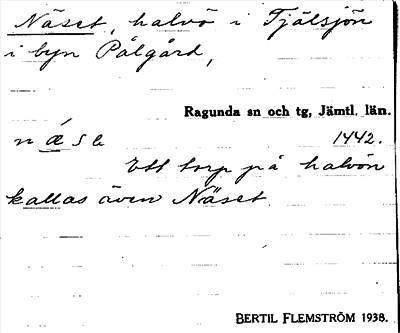 Näset, halvö i Tjälsjön
i byn Pålgård,
Ragunda sn och tg, Jämtl. län.
1442.
Ett torp på halvön
kallas även Näset.
BERTIL FLEMSTRÖM 1938.